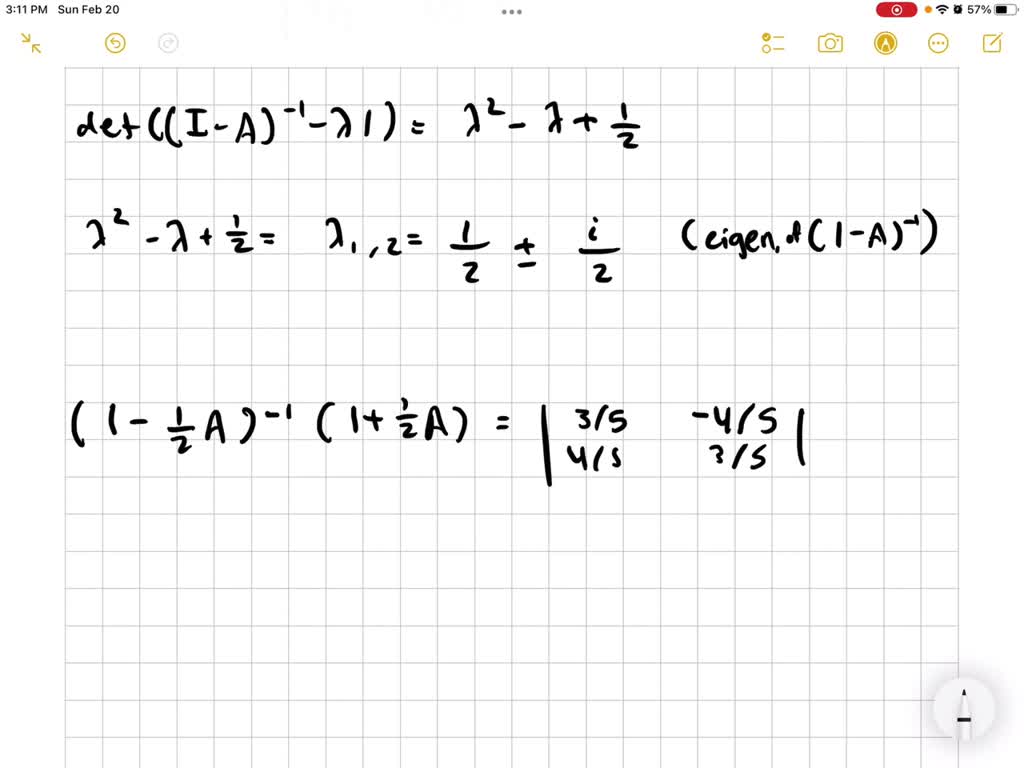 3:11 PM Sun Feb 20 57%
det((I-A)⁻¹-λI) = λ² - λ + 1/2
λ² - λ + 1/2 = λ₁,₂ = 1/2 ± i/2 (eigen. of (I-A)⁻¹)
(I - 1/2 A)⁻¹ (I + 1/2 A) = | 3/5 -4/5 |
4/5 3/5